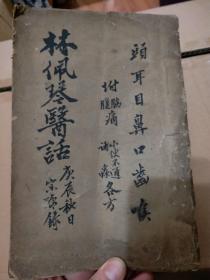 頭耳目鼻口齒喉
附脇痛
腹痛
小便不通
諸淋
各方
林佩琴醫話
庚辰秋日
宗彥錄